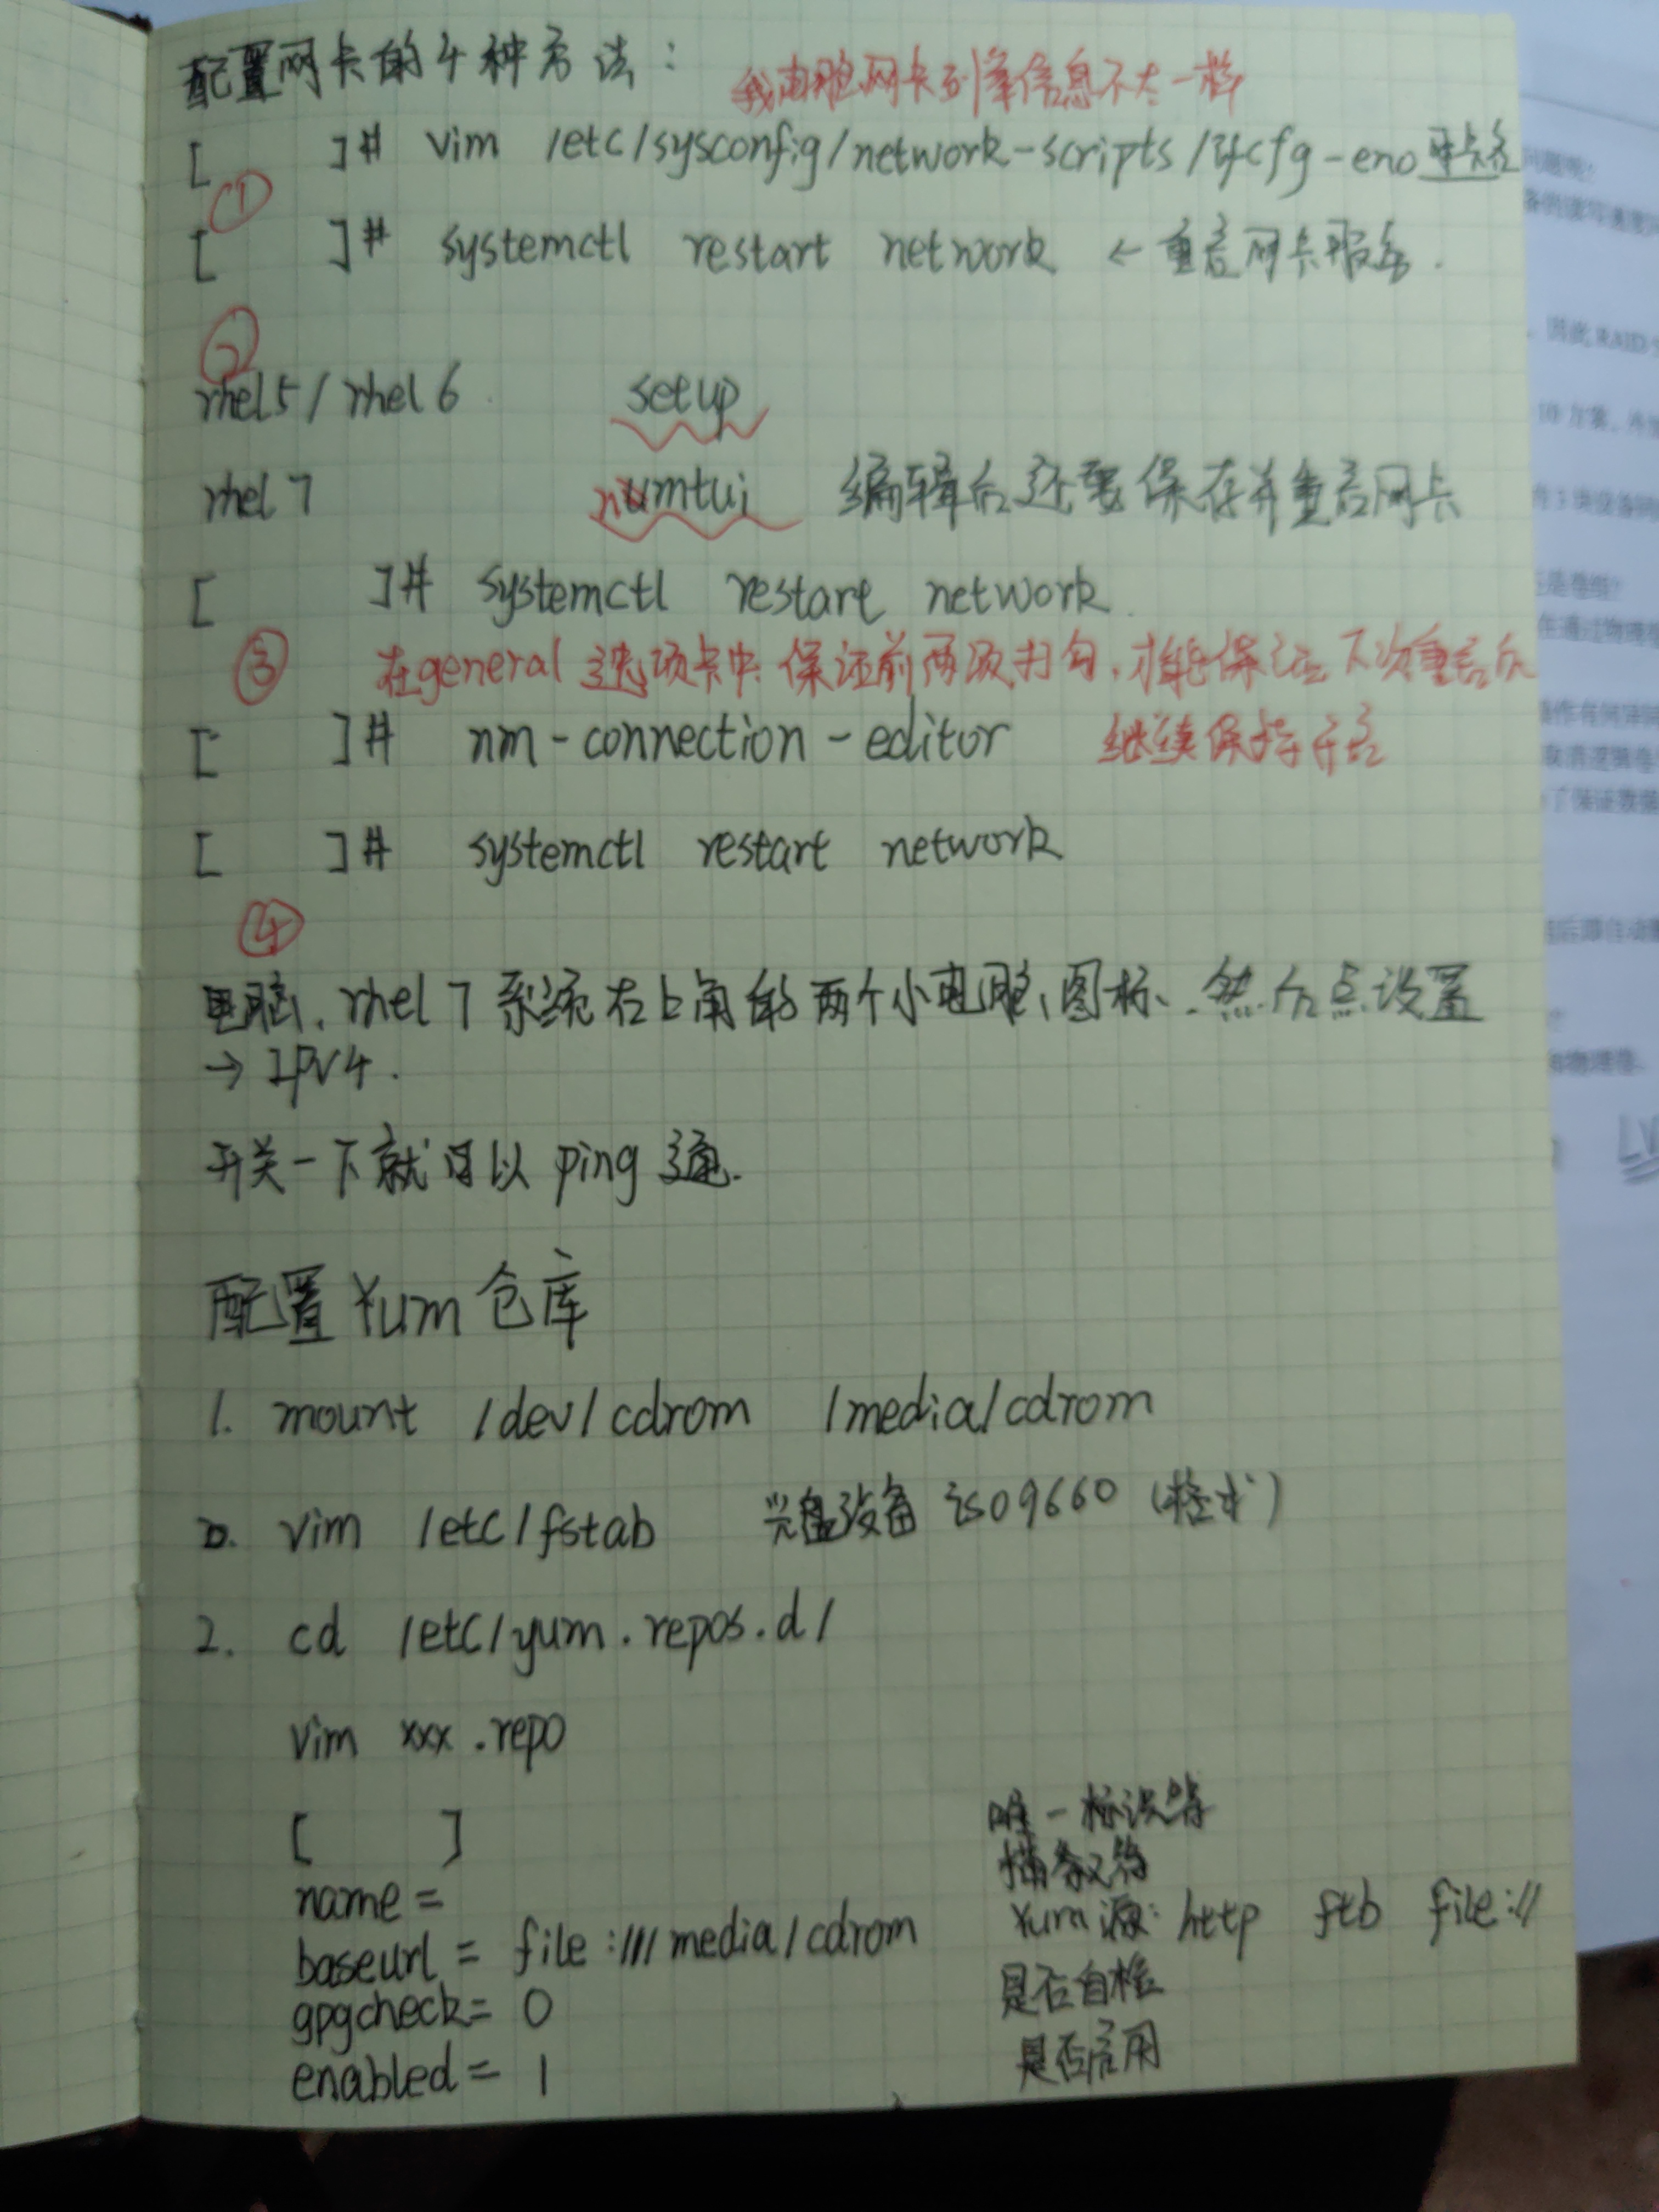 配置网卡的4种方法：
我电脑网卡
信息不太一样
[ ]# vim /etc/sysconfig/network-scripts/ifcfg-eno网卡名
①
[ ]# systemctl restart network ← 重启网卡服务.
②
rhel5/rhel6 setup
rhel7 nmtui 编辑后还要保存并重启网卡
[ ]# systemctl restart network
③ 在general选项卡中保证前两项打勾，才能保证下次重启后
[ ]# nm-connection-editor 继续保持开启
[ ]# systemctl restart network
④
电脑、rhel7系统右上角的两个小电脑图标、然后点设置
→ IPV4.
开关一下就可以ping通.
配置Yum仓库
1. mount /dev/cdrom /media/cdrom
vim /etc/fstab 光盘设备 iso9660 (格式)
2. cd /etc/yum.repos.d/
vim xxx.repo
[ ] 唯一标识符
name=
baseurl = file:///media/cdrom Yum源: http ftb file://
gpgcheck= 0 是否自检
enabled= 1 是否启用
问题呢?
备的读写速度
因此RAID
10方案,
LV